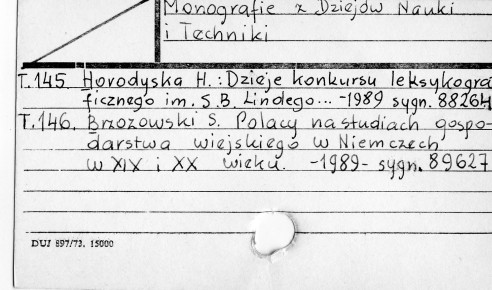 Monografie z Dziejów Nauki
i Techniki
T.145. Horodyska H.: Dzieje konkursu leksykogra
ficznego im. S.B. Lindego... -1989 sygn. 88264
T.146. Brzozowski S. Polacy na studiach gospo-
darstwa wiejskiego w Niemczech
w XIX i XX wieku. -1989- sygn. 89627
DUJ 897/73. 15000